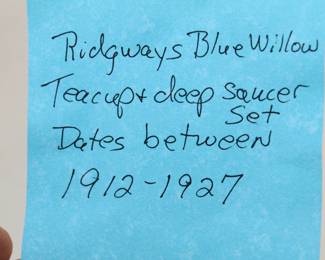 Ridgways Blue Willow
Teacup + deep saucer
Set
Dates between
1912-1927